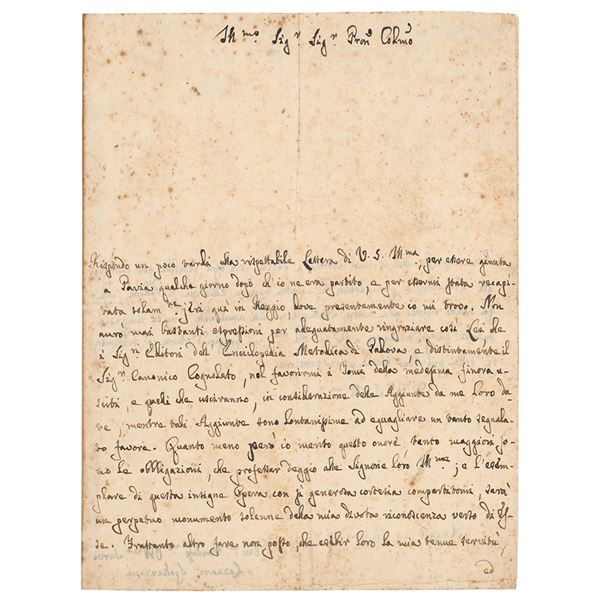 Illmo Sigr Sigr Pron Colmo
Rispondo un poco tardi alla rispettabile Lettera di V. S. Illma, per essere giunta
a Pavia qualche giorno dopo ch'io ne era partito, e per essermi stata recapi-
tata solamte jeri quì in Reggio, dove presentemente io mi trovo. Non
avrò mai bastanti espressioni per adeguatamente ringraziare così Lei che
i Sigri Editori dell'Enciclopedia Metodica di Padova e distintamente il
Sigr Canonico Cognolato, nel favorirmi i Tomi della medesima finora u-
sciti, e quelli che usciranno, in considerazione delle Aggiunte da me Loro da-
te, mentre tali Aggiunte sono lontanissime ad eguagliare un tanto segnala-
to favore. Quanto meno però io merito questo onore tanto maggiori so-
no le obbligazioni, che professar deggio alle Signorie loro Illme; e l'esem-
plare di questa insigne Opera con sì generosa cortesia compartitomi, sarà
un perpetuo monumento solenne della mia divota riconoscenza verso di Es-
se. Frattanto altro fare non posso, che esibir Loro la mia tenue servitù,
ed